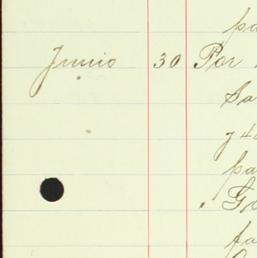 pa
Junio 30 Por
Sa
y 4
pa
Go
fa